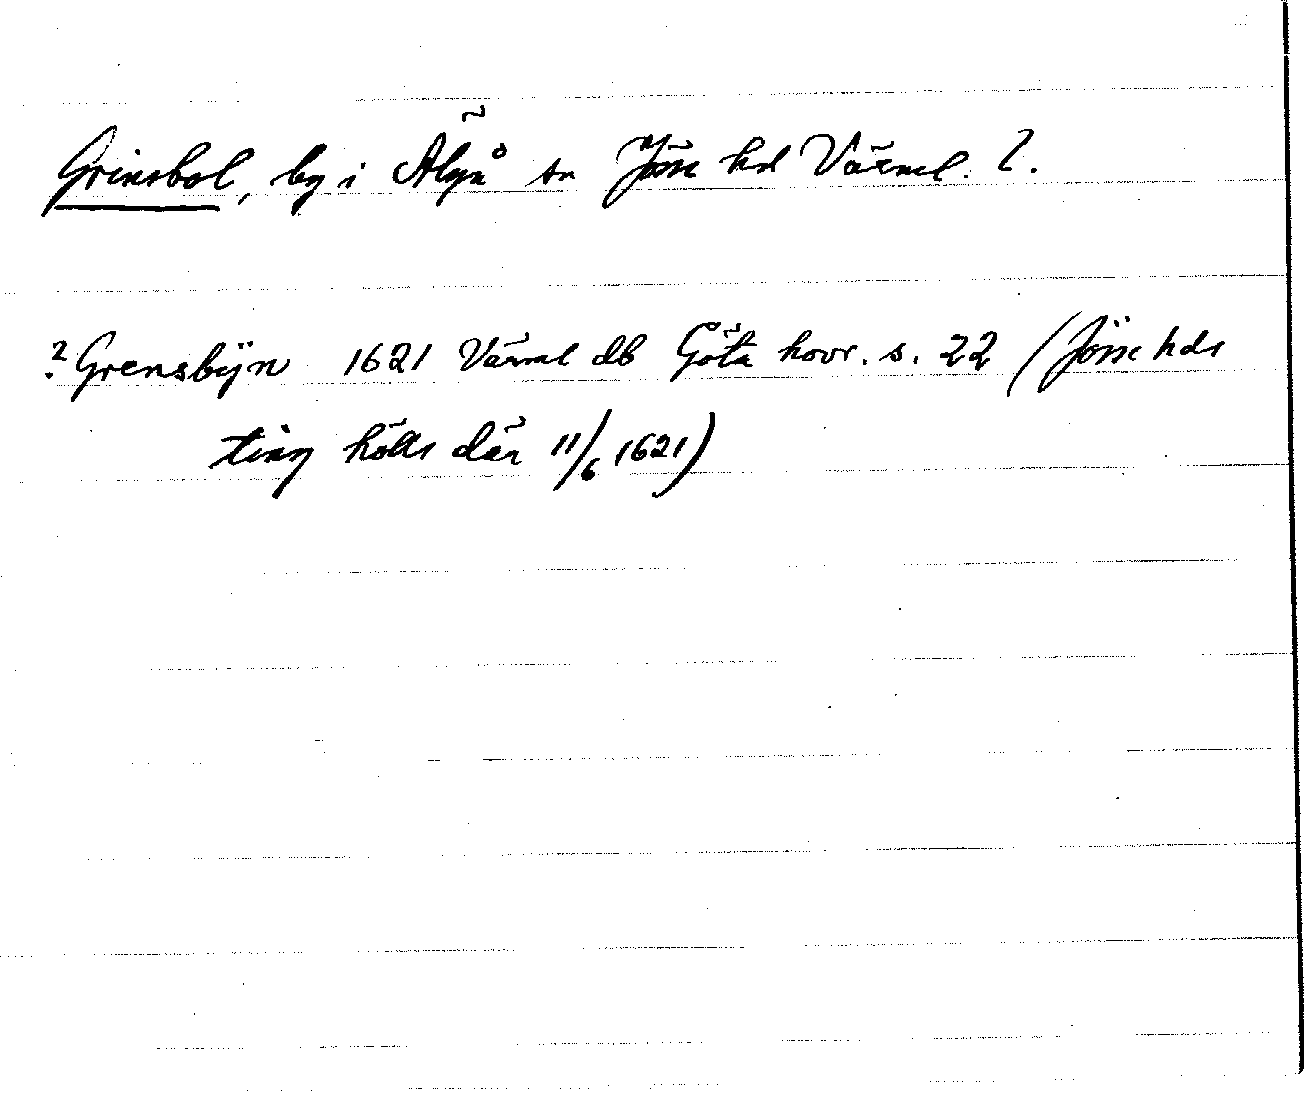 Grinsbol, by i Älgå sn Jösse hd Värml. l.
? Grensbÿn 1621 Värml db Göta hovr. s. 22 (Jösse hds
ting hölls där 11/6 1621)